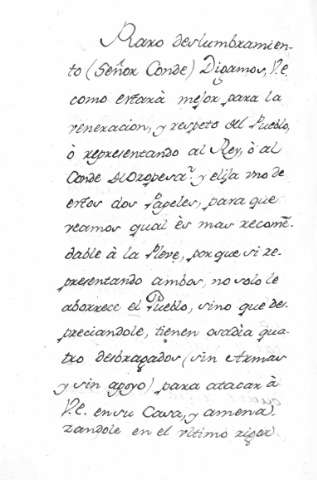 Raro deslumbramien-
to (Señor Conde) Digamos, V.e.
como estarà mejor para la
veneracion, y respeto del Pueblo,
ò representando al Rey, ò al
Conde de Oropesa? y elija vno de
estos dos Papeles, para que
veamos qual ès mas recomẽ-
dable à la Pleve, porque si re-
presentando ambos, no solo le
aborrece el Pueblo, sino que des-
preciandole, tienen osadia qua-
tro desbragados (sin Armas
y sin apoyo) para atacar à
V.e. en su Casa, y amena-
zandole en el vltimo rigor